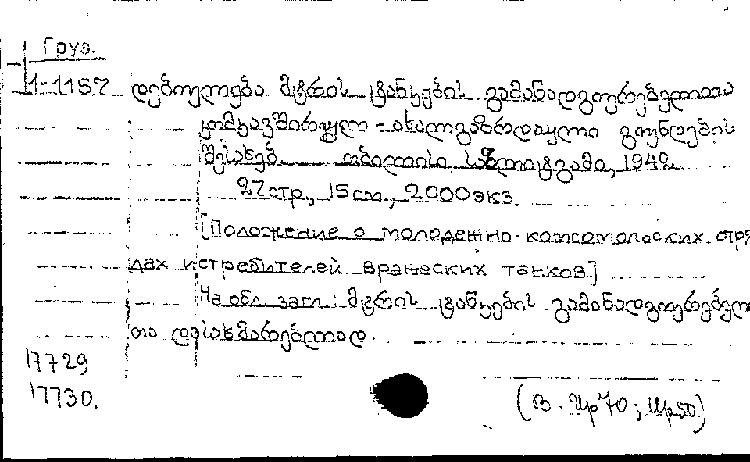 Груз.
1-1157 დებულება მტრის ტანკების გამანადგურებელთა
კომკავშირულ-ახალგაზრდული გუნდების
შესახებ. თბილისი, სახლიტგამი, 1942.
27 стр., 15 см., 2000 экз.
[Положение о молодежно-комсомольских отря
дах истребителей вражеских танков]
На обл. загл.: მტრის ტანკების გამანადგურებელ
თა დასახმარებლად.
17729
17730.